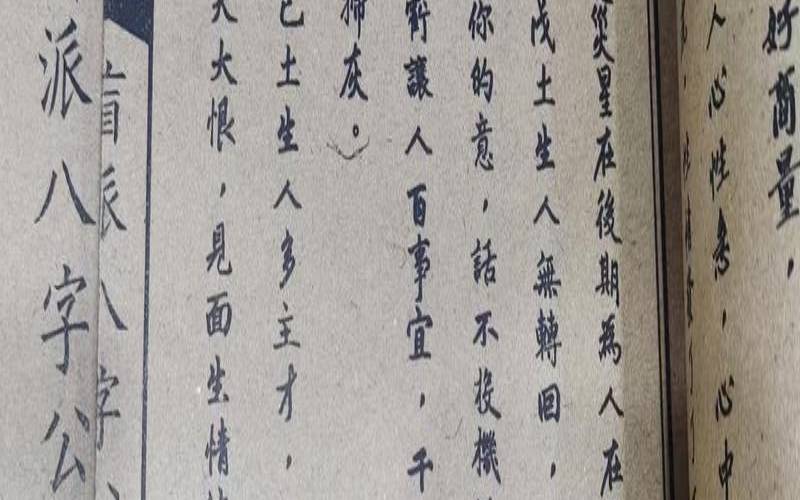 好商量，
人心性急，心中
災星在後期為人在
戊土生人無轉回，
你的意，話不投機
窮讓人百事宜，千
掃灰。
己土生人多主才，
大恨，見面生情
盲派八字
派八字公